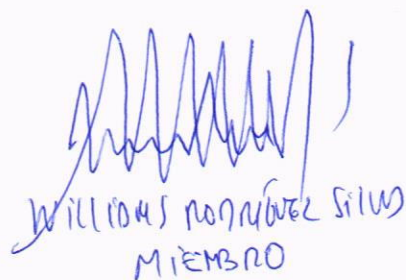 WilliAMS RODRÍGUEZ SilVA
MiEMBRO